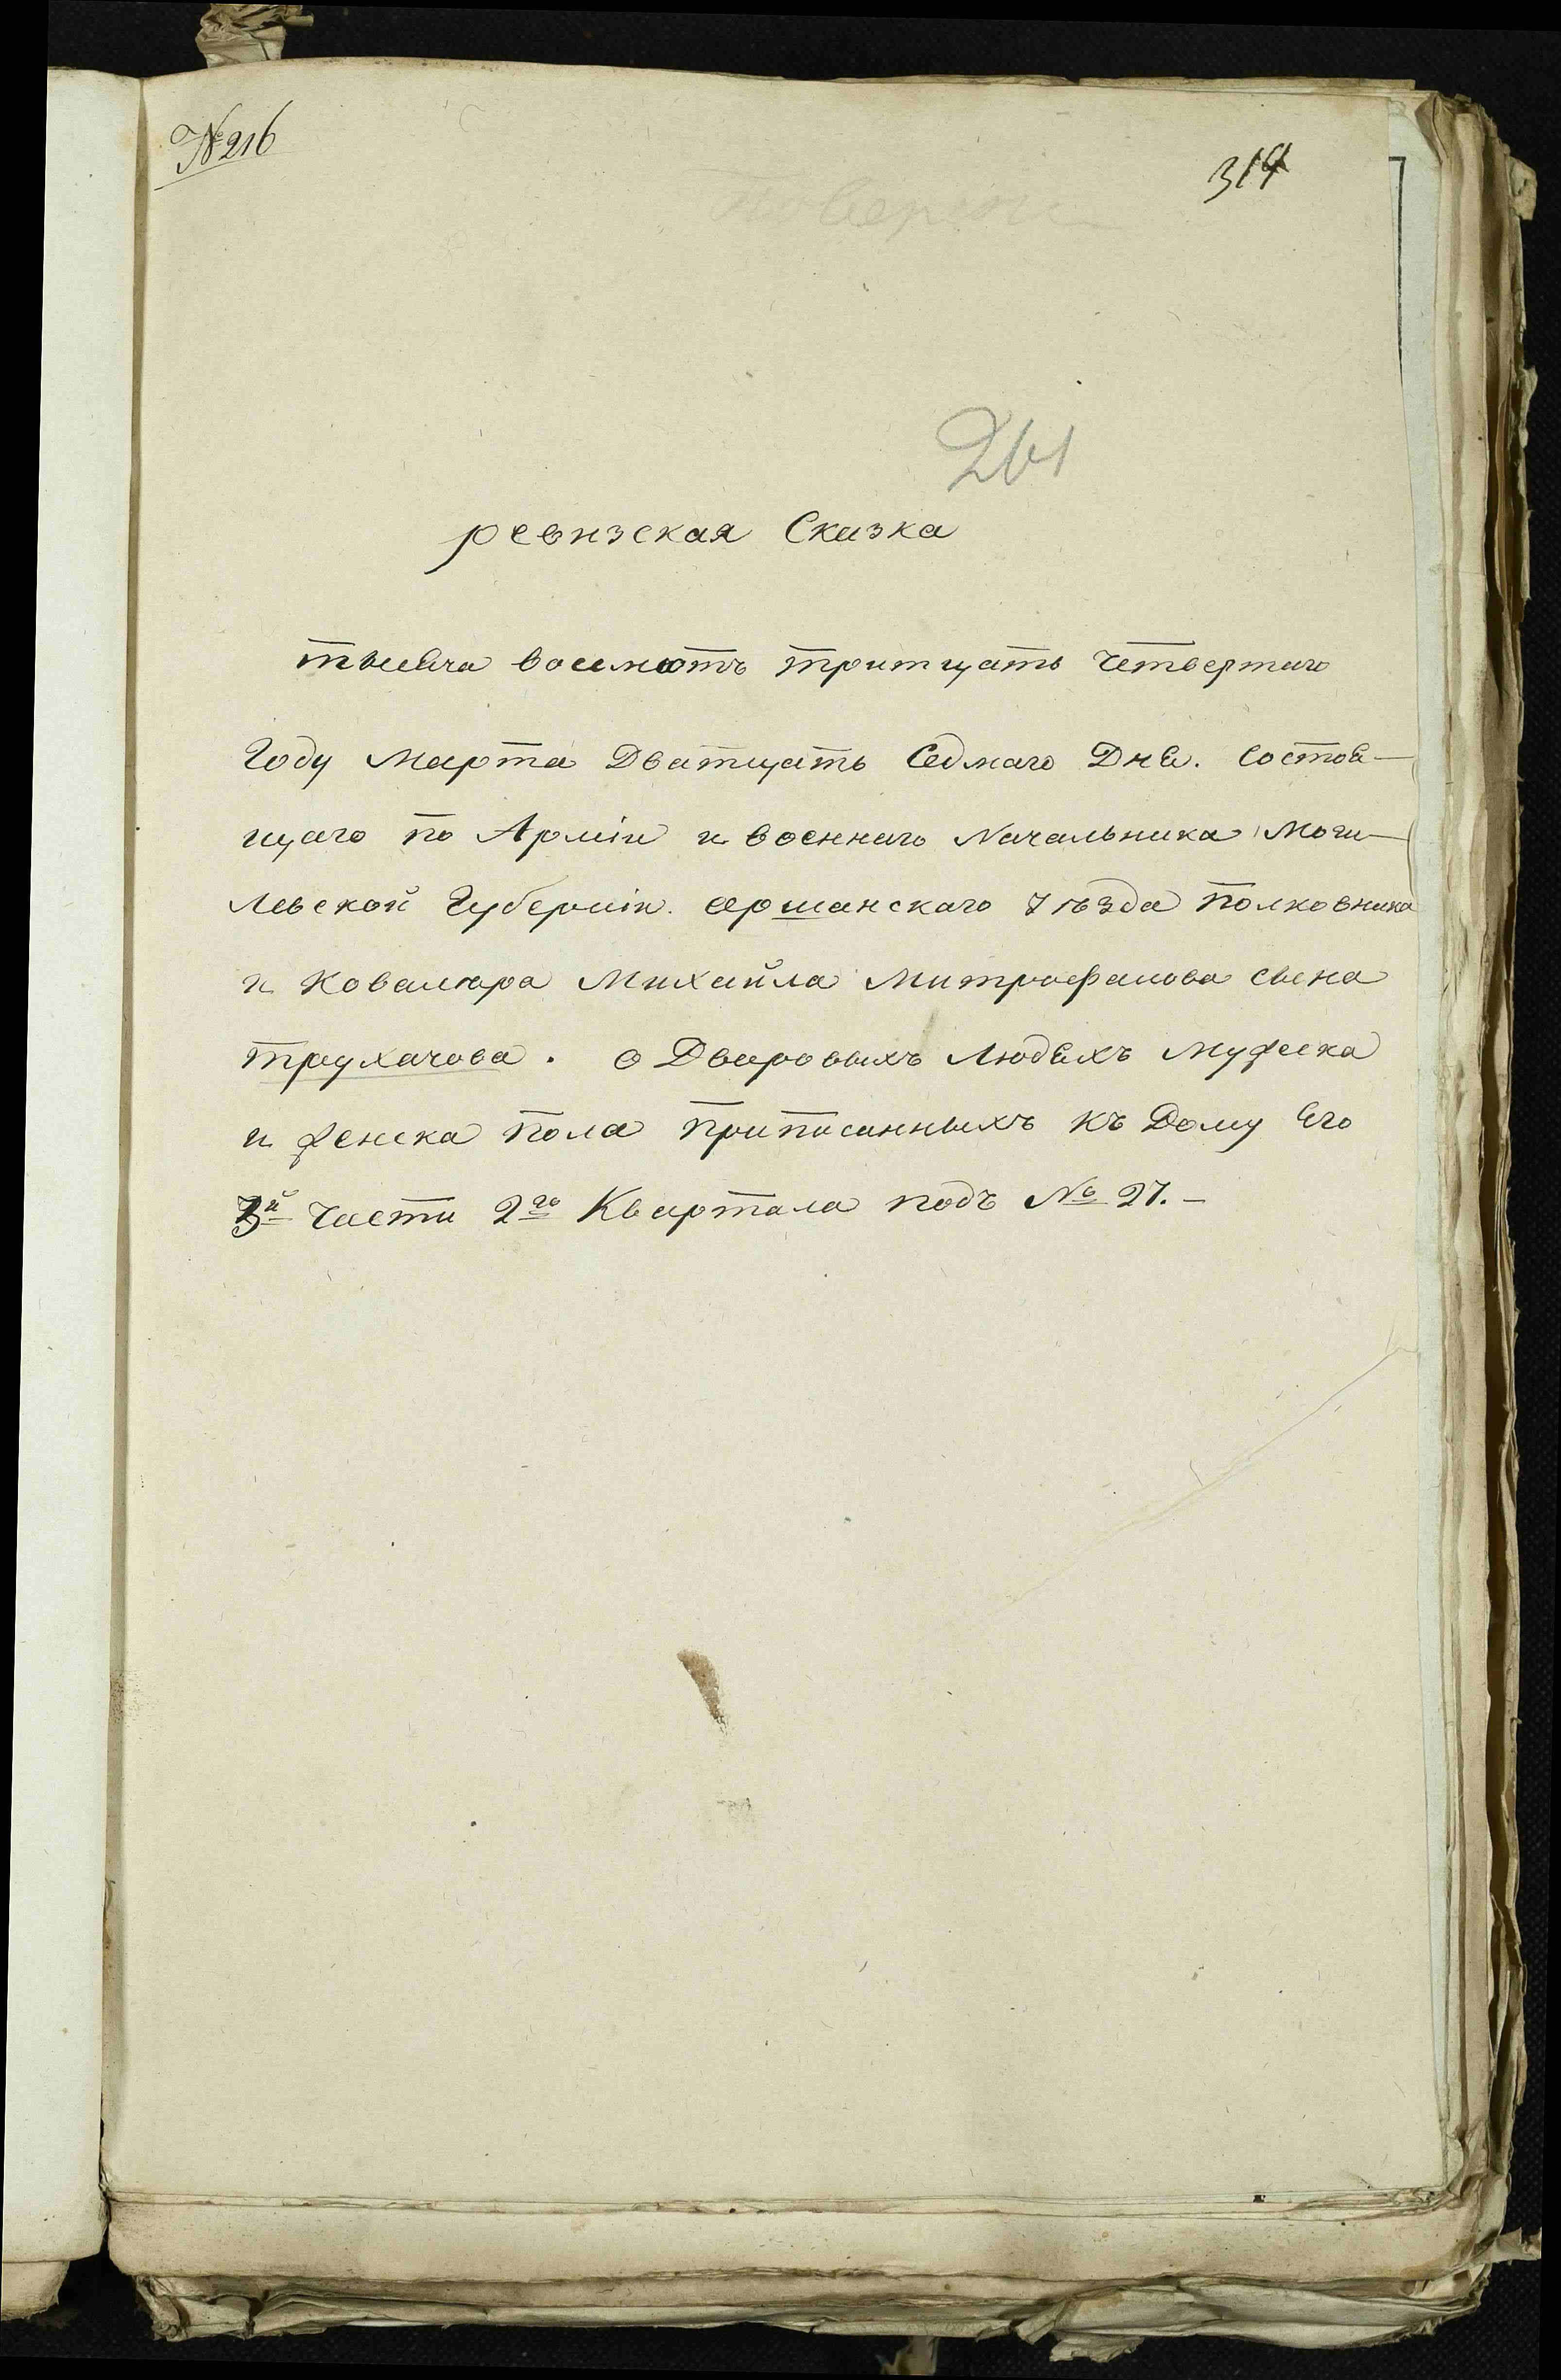 № 216
314
261
ревизская Сказка
тысеча восемсотъ тритцать четвертаго
Году Марта Дватцать Седмаго Дне. Состое-
щаго по Арміи и военнаго Начальника Моги-
левской Губерніи. Оршанскаго Уѣзда полковника
и Ковалера Михайла Митрофанова сына
трухачова. о Дворовыхъ людехъ мужеска
и женска пола приписанныхъ къ Дому Его
3й части 2го Квартала подъ № 27.-